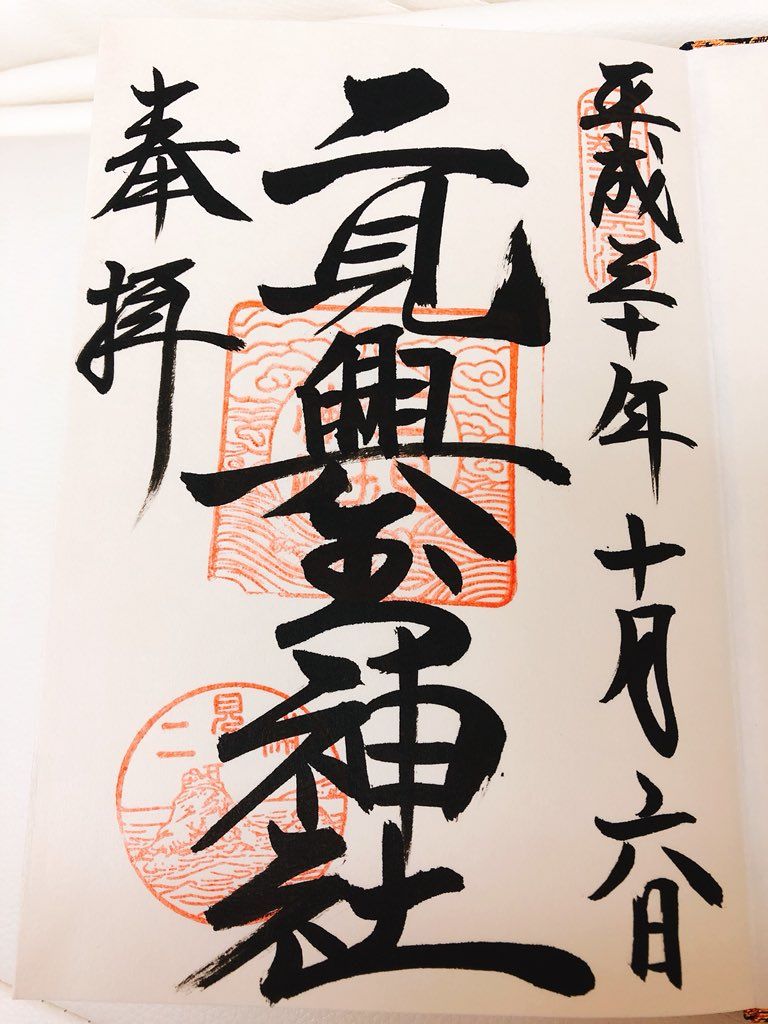 平成三十年十月六日
二見興玉神社
奉拝
二見